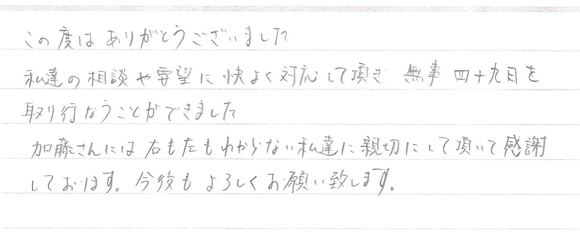 この度はありがとうございました
私達の相談や要望に快よく対応して頂き 無事 四十九日を
取り行なうことができました
加藤さんには右もたもわからない私達に親切にして頂いて感謝
しております。今後もよろしくお願い致します。